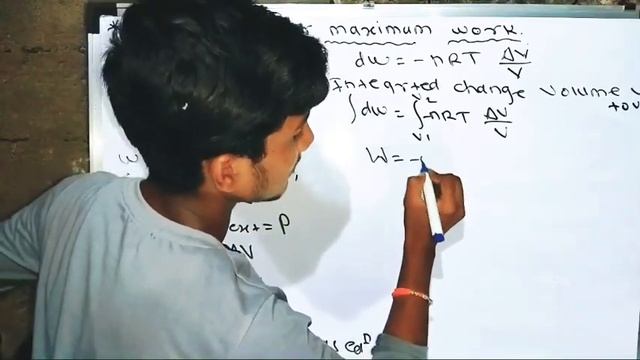 maximum work.
dw = -nRT ΔV/V
Integrted change volume V
to V
∫dw = ∫V1V2 -nRT ΔV/V
W = -
ext = P
ΔV